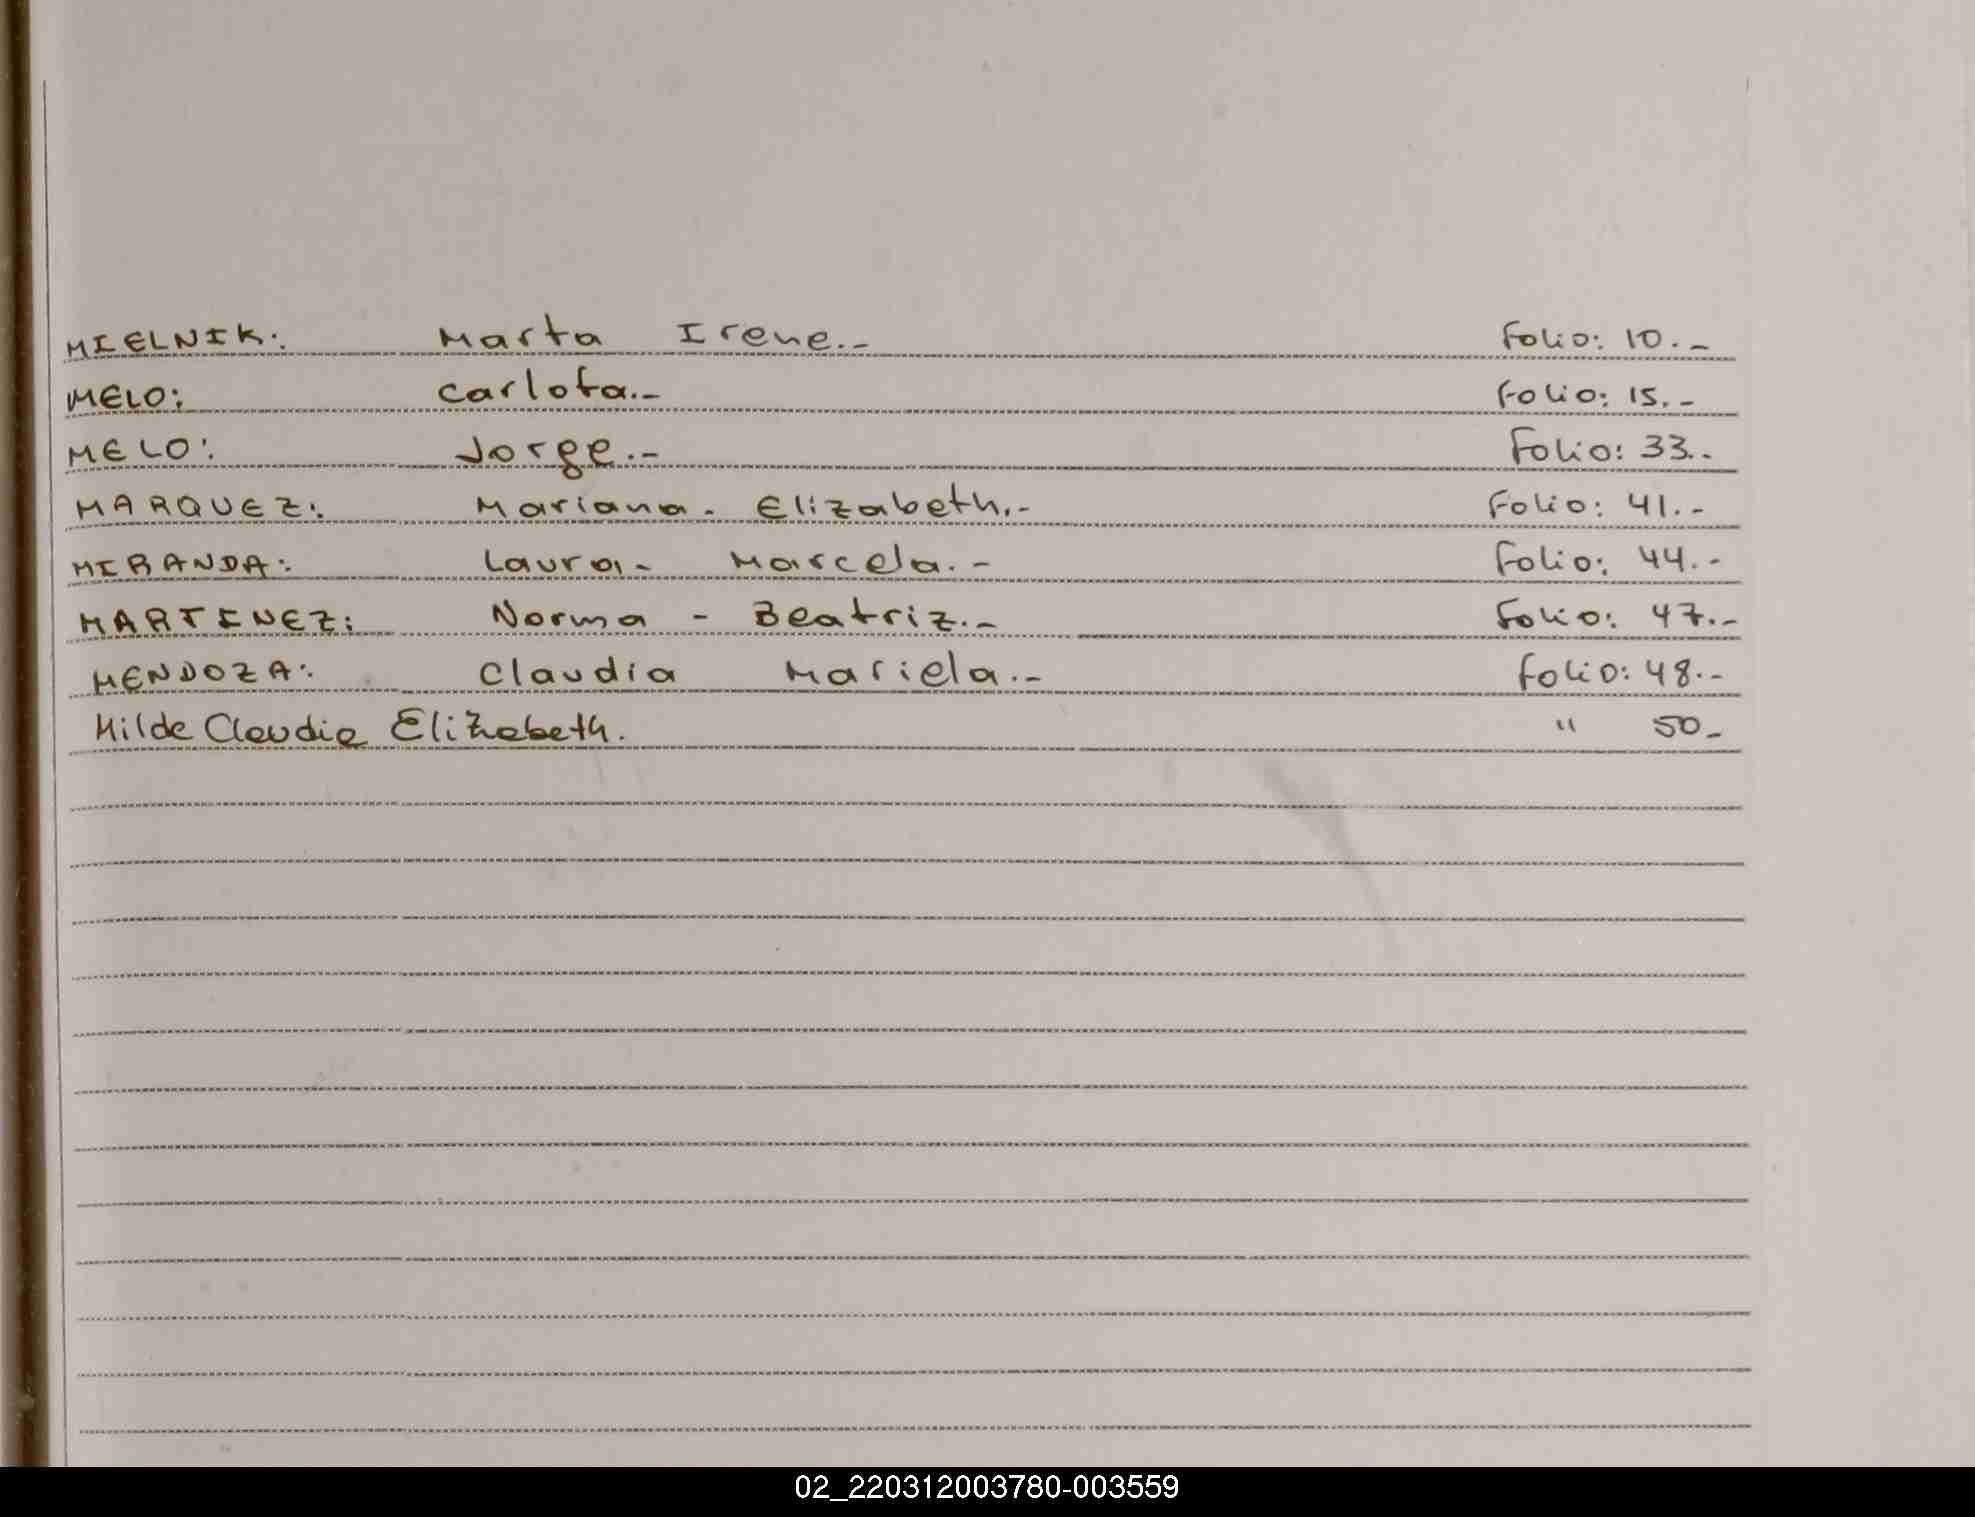 MIELNIK: Marta Irene.- Folio: 10.-
MELO: Carlota.- Folio: 15.-
MELO: Jorge.- Folio: 33.-
MARQUEZ: Mariana. Elizabeth.- Folio: 41.-
MIRANDA: Laura- Marcela.- Folio: 44.-
MARTINEZ: Norma - Beatriz.- Folio: 47.-
MENDOZA: Claudia Mariela.- Folio: 48.-
Milde Claudia Elizabeth. " 50-
02_220312003780-003559